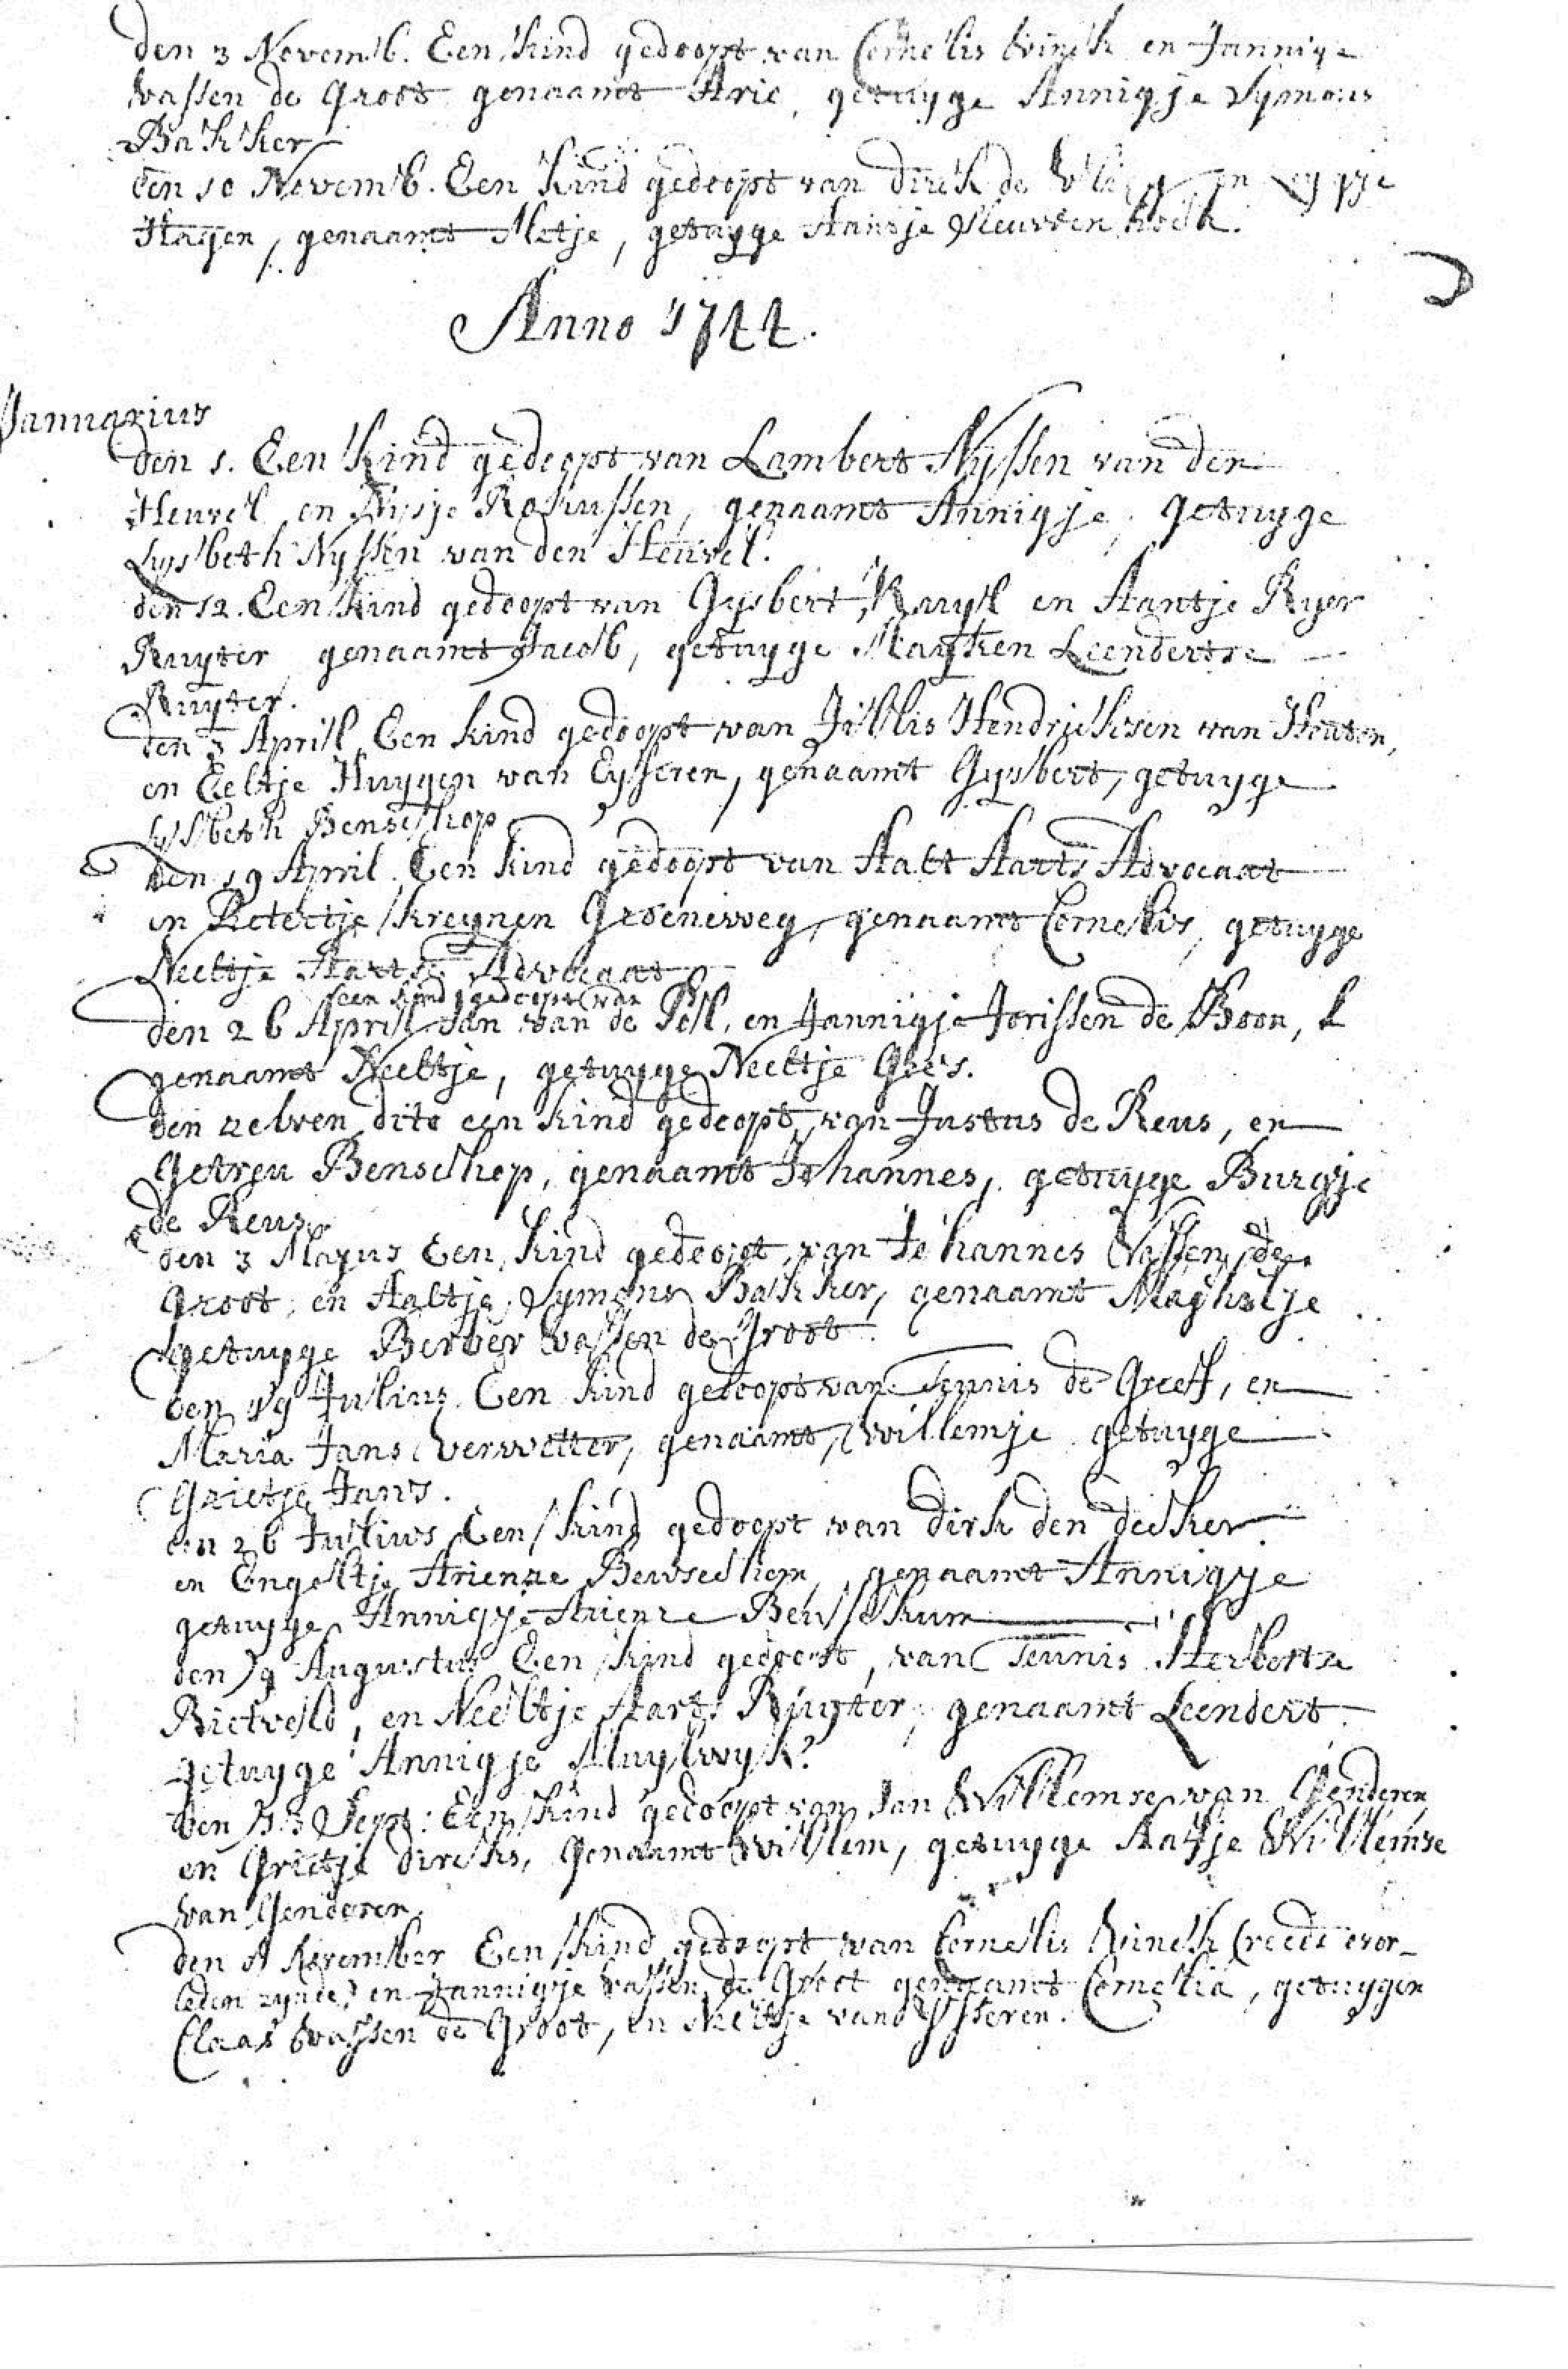 den 3 Novemb. Een kind gedoopt van Cornelis Vinck en Jannigje
Vassen de Groot genaamt Arie, getuyge Annigje Symons
Bakker
den 10 Novemb. Een Kind gedoopt van Dirck de en
Hagen, genaamt Metje, getuyge Aantje
Anno 1744.
Januarius
den 1. Een Kind gedoopt van Lambert Nyssen van den
Heuvel en Rokussen, genaamt Annigje, getuyge
Lysbeth Nyssen van den Heuvel.
den 12. Een Kind gedoopt van Gysbert Kuyk en Aantje Ryer
Ruyter genaamt Jacob, getuyge Mayken Leendertse
Ruyter.
den 3 April Een kind gedoopt van Jillis Hendricksen van Houten,
en Eeltje Huygen van Eysseren, genaamt Gysbert, getuyge
Lysbeth Benschop
den 19 April. Een kind gedoopt van Aalt Aarts Advocaat
en Pietertje Kreynen Groeneweg, genaamt Cornelis, getuyge
Neeltje Aartse Advocaat
een kind gedoopt van
den 26 April Jan van de Poll, en Jannigje Jorissen de Boon,
genaamt Neeltje, getuyge Neeltje Gees.
den zelven dito een kind gedoopt van Justus de Reus, en
Getreu Benschop, genaamt Johannes, getuyge Burgje
de Reus
den 3 Mayus Een Kind gedoopt van Johannes Vassen de
Groot, en Aaltje Symons Bakker, genaamt Maghtelje
getuyge Berber Vassen de Groot.
den 19 Julius Een Kind gedoopt van Teunis de Greef, en
Maria Jans Verwetter, genaamt, Willemje getuyge
Grietje Jans.
den 26 Julius Een Kind gedoopt van Dirk den Decker
en Engeltje Arienze Beusechem, genaamt Annigje
getuyge Annigje Arienze Beusekum
den 9 Augustus Een Kind gedoopt, van Teunis Herbertze
Rietveld, en Neeltje Aarts Ruyter, genaamt Leendert
getuyge Annigje Muylwyk.
den 13 Sept: Een Kind gedoopt van Jan Willemse van Genderen,
en Grietje Dircks, Genaamt Willem, getuyge Aatje Willemse
van Genderen.
den 1 November Een Kind gedoopt van Cornelis Vinck (reeds over-
leden zynde) en Jannigje Vassen de Groot genaamt Cornelia, getuygen
Claas Vassen de Groot, en Neeltje van Ysseren.